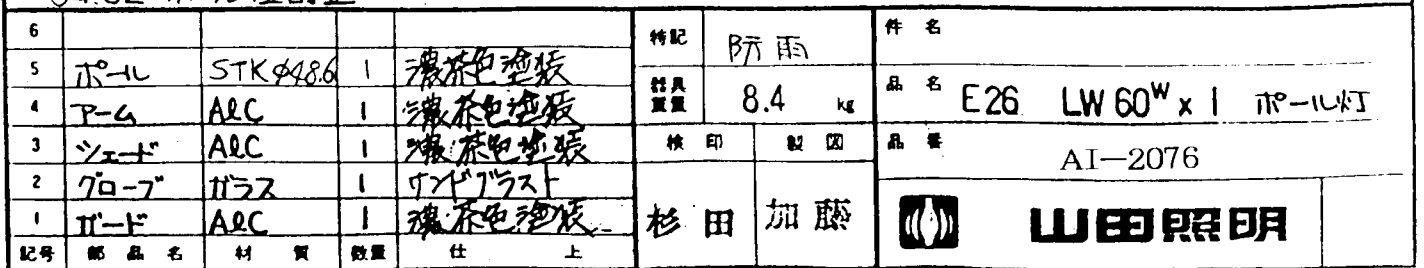 6
5 ポール STKφ48.6 1 濃茶色塗装
4 アーム AlC 1 濃茶色塗装
3 シェード AlC 1 濃茶色塗装
2 グローブ ガラス 1 サンドブラスト
1 ガード AlC 1 濃茶色塗装
記号 部品名 材質 数量 仕上
特記 防雨
器具重量 8.4 kg
検印 製図
杉田 加藤
件名
品名 E26 LW60W x 1 ポール灯
品番 AI-2076
山田照明